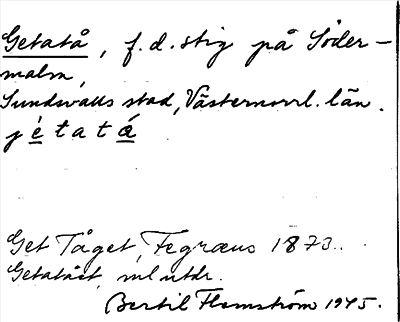 Getatå, f.d. stig på Söder-
malm,
Sundsvalls stad, Västernorrl. län.
jètatá
Get Tåget, Fegræus 1873.
Getatået, ml utdr.
Bertil Flemström 1945.